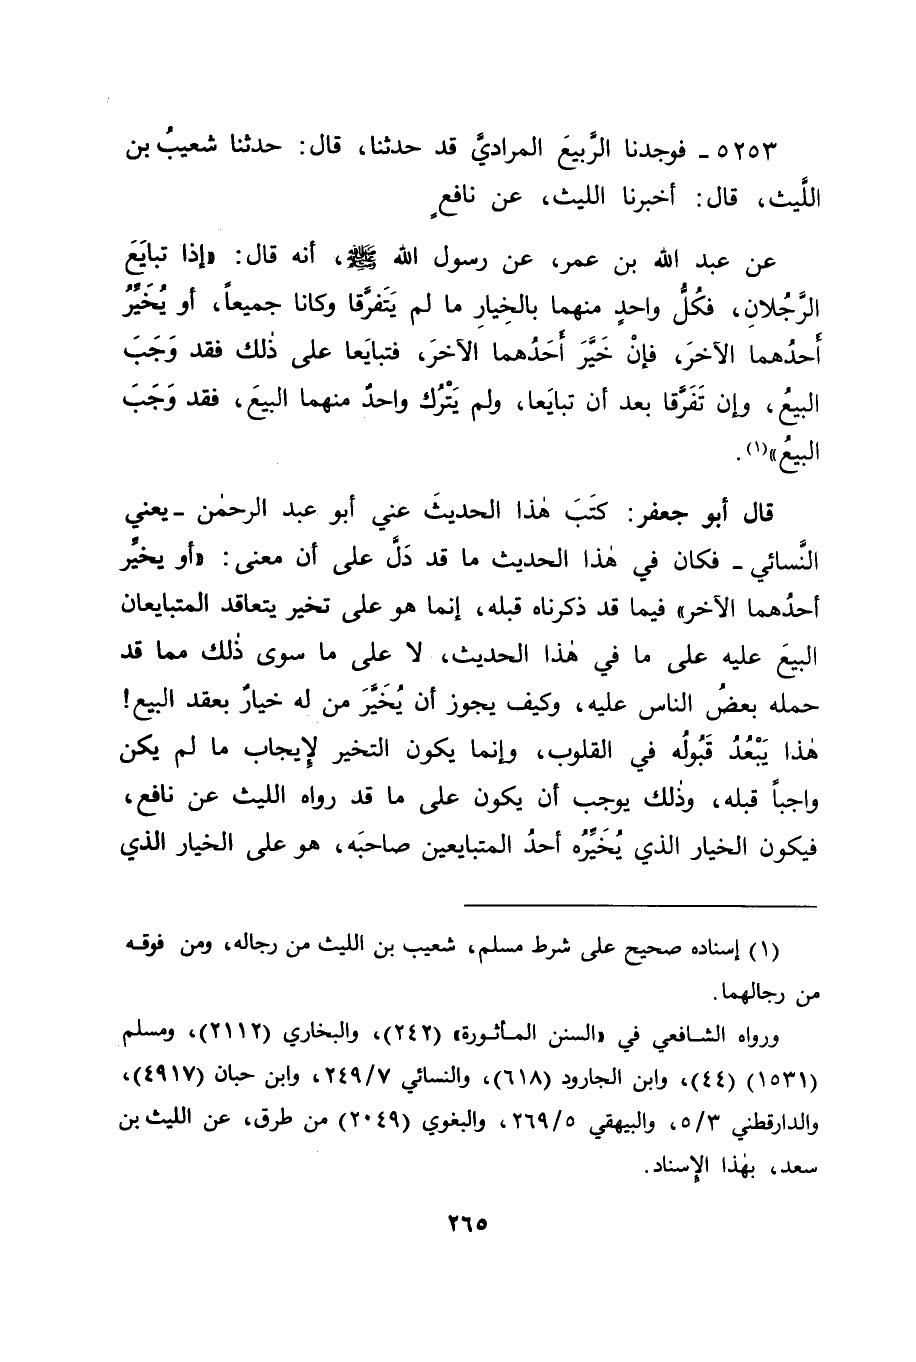 ٥٢٥٣ ـ فوجدنا الرَّبيعَ المراديَّ قد حدثنا، قال: حدثنا شعيبُ بن
اللَّيث، قال: أخبرنا الليث، عن نافعٍ
عن عبد الله بن عمر، عن رسول الله ﷺ، أنه قال: «إذا تبايَعَ
الرَّجُلانِ، فكُلُّ واحدٍ منهما بالخِيارِ ما لم يَتَفرَّقا وكانا جميعاً، أو يُخَيِّرُ
أحدُهما الآخرَ، فإنْ خَيَّرَ أَحَدُهما الآخرَ، فتبايَعا على ذٰلك فقد وَجَبَ
البيعُ، وإن تَفَرَّقا بعد أن تبايَعا، ولم يَتْرُك واحدٌ منهما البيعَ، فقد وَجَبَ
البيعُ»(١).
قال أبو جعفر: كتَبَ هٰذا الحديثَ عني أبو عبد الرحمٰن ـ يعني
النَّسائي ـ فكان في هٰذا الحديث ما قد دَلَّ على أن معنى: «أو يخيِّر
أحدُهما الآخر» فيما قد ذكرناه قبله، إنما هو على تخير يتعاقد المتبايعان
البيعَ عليه على ما في هٰذا الحديث، لا على ما سوى ذٰلك مما قد
حمله بعضُ الناس عليه، وكيف يجوز أن يُخَيَّرَ من له خيارٌ بعقد البيع!
هٰذا يَبْعُدُ قَبُولُه في القلوب، وإنما يكون التخير لإيجاب ما لم يكن
واجباً قبله، وذٰلك يوجب أن يكون على ما قد رواه الليث عن نافع،
فيكون الخيار الذي يُخَيِّرُه أحدُ المتبايعين صاحبَه، هو على الخيار الذي
(١) إسناده صحيح على شرط مسلم، شعيب بن الليث من رجاله، ومن فوقه
من رجالهما.
ورواه الشافعي في «السنن المأثورة» (٢٤٢)، والبخاري (٢١١٢)، ومسلم
(١٥٣١) (٤٤)، وابن الجارود (٦١٨)، والنسائي ٢٤٩/٧، وابن حبان (٤٩١٧)،
والدارقطني ٥/٣، والبيهقي ٢٦٩/٥، والبغوي (٢٠٤٩) من طرق، عن الليث بن
سعد، بهٰذا الإسناد.
٢٦٥